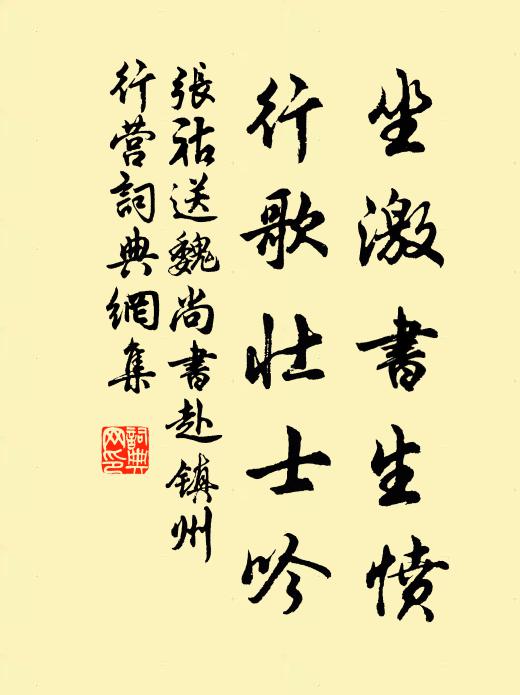 坐激書生憤
行歌壯士吟
張祜送魏尚書赴鎮州
行營詞典網集
詞典网印